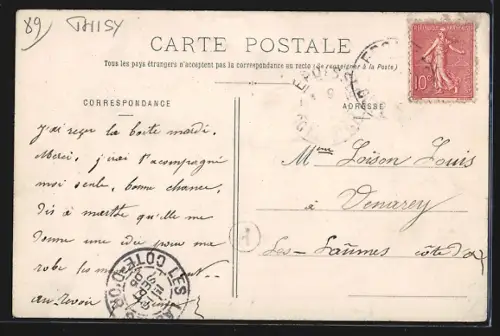 89 THISY
CARTE POSTALE
Tous les pays étrangers n'acceptent pas la correspondance au recto (se renseigner à la Poste)
CORRESPONDANCE
ADRESSE
10c
J'ai reçu la boite mardi.
Merci, j'irai l'accompagné
moi seule, bonne chance,
Dis à marthe qu'elle me
donne une idée pour ma
robe
au revoir
Mme Loison Louis
à Venarey
Les-Laumes côte d'or
LES LAUMES
CÔTE-D'OR